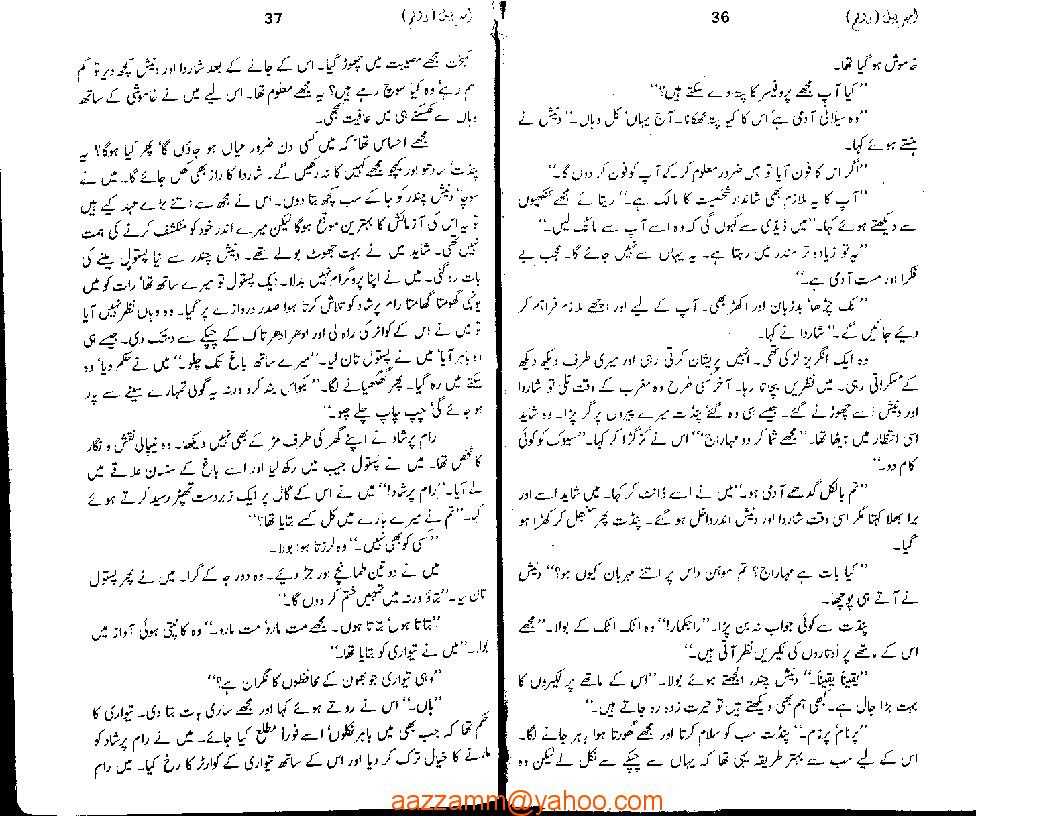 36
خاموش ہو گیا تھا۔
”کیا آپ مجھے پروفیسر کا پتہ دے سکتے ہیں؟“
”وہ سیلانی آدمی ہے‘ اس کا کیا پتہ ٹھکانا۔ آج یہاں‘ کل وہاں۔“ دنیش نے
ہنستے ہوئے کہا۔
”اگر اس کا فون آیا تو میں ضرور معلوم کر کے آپ کو فون کر دوں گا۔“
”آپ کا یہ ملازم بھی شاندار شخصیت کا مالک ہے۔“ ریتا نے مجھے کنکھیوں
سے دیکھتے ہوئے کہا۔ ”میں ڈیڈی سے کہوں گی کہ وہ اسے آپ سے مانگ لیں۔“
”یہ تو زیادہ تر مندر میں رہتا ہے۔ یہ یہاں سے نہیں جائے گا۔ عجب بے
فکرا اور مست آدمی ہے۔“
”نک چڑھا‘ بدزبان اور اکھڑ بھی۔ آپ کے لیے اور اچھے ملازم فراہم کر
دیے جائیں گے۔“ شاردا نے کہا۔
وہ ایک انگریز لڑکی تھی۔ انہیں پریشان کرتی رہی اور میری طرف دیکھ دیکھ
کے مسکراتی رہی۔ میں نظریں بچاتا رہا۔ آخر کسی طرح وہ مغرب کے وقت ٹلی تو شاردا
اور دنیش اسے چھوڑنے گئے۔ جیسے ہی وہ گئے پنڈت میرے پیروں پر گر پڑا۔ وہ شاید
اسی انتظار میں بیٹھا تھا۔ ”مجھے شما کر دو مہاراج!“ اس نے گڑگڑا کر کہا۔ ”سیوک کو کوئی
کام دو۔“
”تم بالکل گدھے آدمی ہو۔“ میں نے اسے ڈانٹ کر کہا۔ میں شاید اسے اور
برا بھلا کہتا مگر اسی وقت شاردا اور دنیش اندر داخل ہو گئے۔ پنڈت پھر سنبھل کر کھڑا ہو
گیا۔
”کیا بات ہے مہاراج؟ تم موہن داس پر اتنے مہربان کیوں ہو؟“ دنیش
نے آتے ہی پوچھا۔
پنڈت سے کوئی جواب نہ بن پڑا۔ ”راجکمار!“ وہ اٹک اٹک کے بولا۔ ”مجھے
اس کے ماتھے پر اوتاروں کی لکیریں نظر آتی ہیں۔“
”یقیناً یقیناً۔“ دنیش چندر الجھتے ہوئے بولا۔ ”اس کے ماتھے پر لکیروں کا
بہت بڑا جال ہے۔ کبھی ہم بھی دیکھتے ہیں تو حیرت زدہ رہ جاتے ہیں۔“
”پرنام‘ پرنام۔“ پنڈت سب کو سلام کرتا اور مجھے گھورتا ہوا باہر جانے لگا۔
اس کے لیے سب سے بہتر طریقہ یہی تھا کہ یہاں سے چپکے سے نکل لے لیکن وہ
37
کمبخت مجھے مصیبت میں چھوڑ گیا۔ اس کے جانے کے بعد شاردا اور دنیش کچھ دیر تو گم
صم رہے‘ وہ کیا سوچ رہے ہیں؟ یہ مجھے معلوم تھا۔ اس لیے میں نے خاموشی کے ساتھ
وہاں سے کھسکنے ہی میں عافیت سمجھی۔
مجھے احساس تھا کہ میں کسی دن ضرور عیاں ہو جاؤں گا‘ پھر کیا ہوگا؟ یہ
پنڈت‘ سادھو اور پجاری مجھے کہیں کا نہ رکھیں گے۔ شاردا کا راز بھی کھل جائے گا۔ میں نے
سوچا‘ دنیش چندر کو جا کے سب کچھ بتا دوں۔ اس نے مجھ سے اتنے بڑے عہد کیے ہیں
تو یہ اس کی آزمائش کا بہترین موقع ہوگا لیکن میرے اندر خود کو منکشف کرنے کی ہمت
نہیں تھی۔ شاید میں نے بہت جھوٹ بولے تھے۔ دنیش چندر سے نیا پستول لینے کی
بات رہ گئی۔ میں نے اپنا پروگرام نہیں بدلا۔ ایک پستول تو میرے ساتھ تھا‘ رات کو میں
یونہی گھومتا گھامتا رام پرشاد کو تلاش کرتا ہوا صدر دروازے پر گیا۔ وہ وہاں نظر نہیں آیا
تو میں نے اس کے کوارٹر کی راہ لی اور ادھر ادھر تاک کے چپکے سے دستک دی۔ جیسے ہی
وہ باہر آیا‘ میں نے پستول تان لیا۔ ”میرے ساتھ باغ تک چلو۔“ میں نے حکم دیا‘ وہ
سکتے میں رہ گیا۔ پھر گھگھیانے لگا۔ ”بکواس بند کرو ورنہ یہ گولی تمہارے سینے سے پار
ہو جائے گی‘ چپ چاپ چلے چلو۔“
رام پرشاد نے اپنے گھر کی طرف مڑ کے بھی نہیں دیکھا۔ وہ نیپالی نقش و نگار
کا شخص تھا۔ میں نے پستول جیب میں رکھ لیا اور اسے باغ کے سنسان علاقے میں
لے آیا۔ ”رام پرشاد!“ میں نے اس کے گال پر ایک زبردست تھپڑ رسید کرتے ہوئے
کہا۔ ”تم نے میرے بارے میں کل کسے بتایا تھا؟“
”کسی کو بھی نہیں۔“ وہ لرزتا ہوا بولا۔
میں نے دو تین طمانچے اور جڑ دیئے۔ وہ دور جا کے گرا۔ میں نے پھر پستول
تان لیا۔ ”بتاؤ ورنہ میں تمہیں ختم کر دوں گا۔“
”بتاتا ہوں‘ بتاتا ہوں۔ مجھے مت مارو‘ مت مارو۔“ وہ کانپتی ہوئی آواز میں
بولا۔ ”میں نے تیواری کو بتایا تھا۔“
”وہی تیواری جو بھون کے محافظوں کا نگران ہے؟“
”ہاں۔“ اس نے روتے ہوئے کہا اور مجھے ساری بات بتا دی۔ تیواری کا
حکم تھا کہ جب بھی میں باہر نکلوں‘ اسے فوراً مطلع کیا جائے۔ میں نے رام پرشاد کو
مارنے کا خیال ترک کر دیا اور اس کے ساتھ تیواری کے کوارٹر کا رخ کیا۔ میں رام
aazzamm@yahoo.com